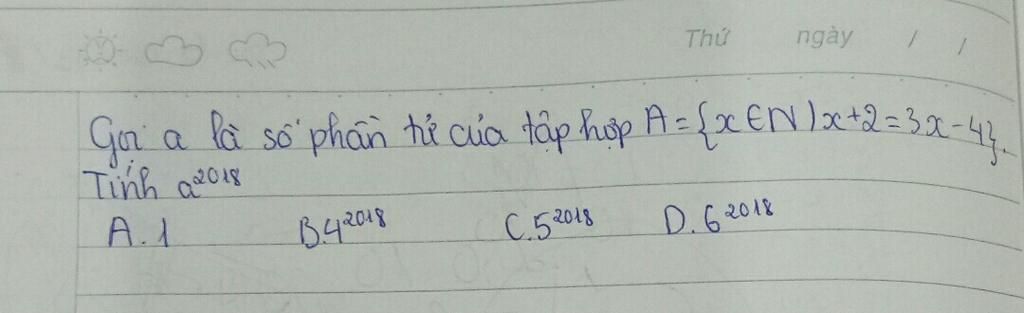 Thứ ngày / /
Gọi a là số phần tử của tập hợp A = {x ∈ N | x+2 = 3x-4}.
Tính a²⁰¹⁸
A. 1 B. 4²⁰¹⁸ C. 5²⁰¹⁸ D. 6²⁰¹⁸